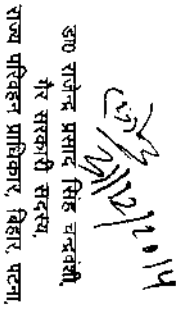 11/12/2014
डा0 राजेन्द्र प्रसाद सिंह चन्द्रवंशी,
गैर सरकारी सदस्य,
राज्य परिवहन प्राधिकार, बिहार, पटना,